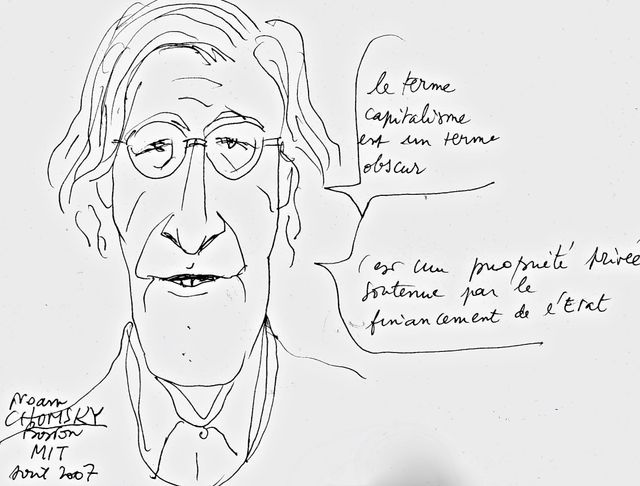 le terme
capitalisme
est un terme
obscur
c'est une propriété privée
soutenue par le
financement de l'Etat
Noam
CHOMSKY
Boston
MIT
Aout 2007